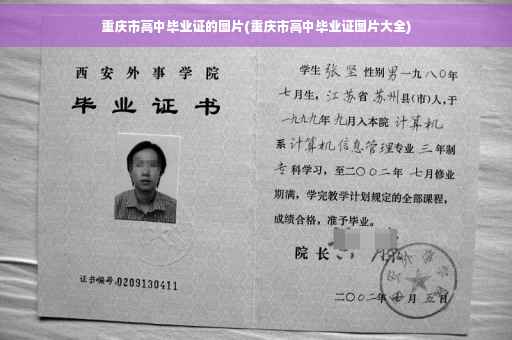 重庆市高中毕业证的图片(重庆市高中毕业证图片大全)
西安外事学院
毕业证书
证书编号:0209130411
学生 张坚 性别 男 一九八〇年
七月生,江苏省 苏州 县(市)人,于
一九九九年 九月入本院 计算机
系 计算机信息管理 专业 三 年制
专科学习,至二〇〇二年 七月修业
期满,学完教学计划规定的全部课程,
成绩合格,准予毕业。
院长
二〇〇二年 月 五日